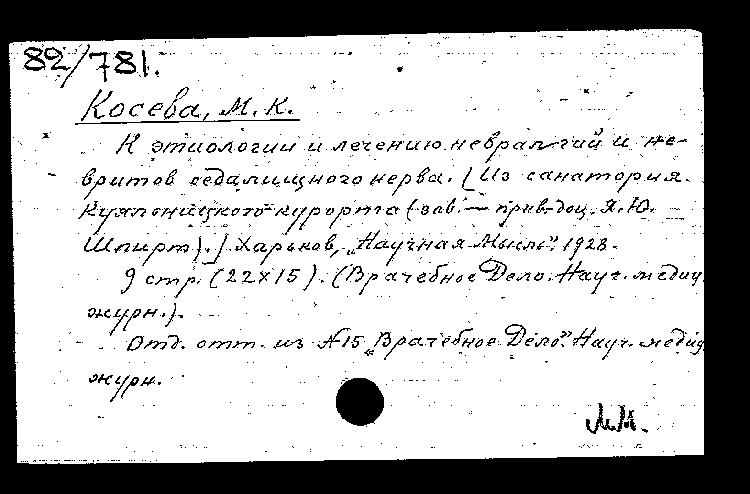 82/781.
Косева, М. К.
К этиологии и лечению невралгий и не-
вритов седалищного нерва. [Из санатория
Куяльницкого курорта (зав. — прив-доц. Я. Ю.
Шпирт).] Харьков, "Научная Мысль". 1928.
9 стр. (22×15). (Врачебное Дело. Науч. медиц.
журн.).
Отд. отт. из №15 "Врачебное Дело". Науч. медиц.
журн.
М.М.